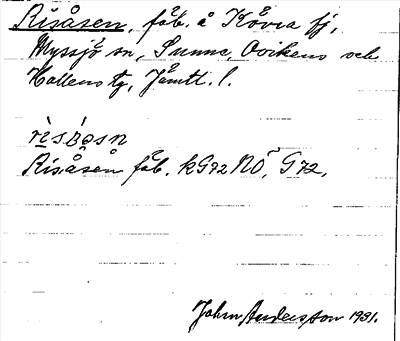 Risåsen, fäb. å Kövra fj,
Myssjö sn, Sunne, Ovikens och
Hallens tg, Jämtl. l.
rìsòsn
Risåsen fäb. kG72NÖ, G72,
John Andersson 1931.